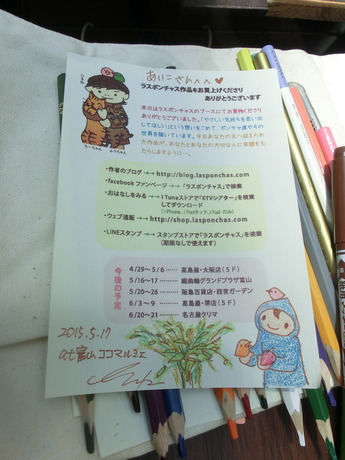 あいこさんへ♥
ラスポンチャス作品をお買上げくださり
ありがとうございます
本日はラスポンチャスのブースにてお買物くださり
ありがとうございました。「やさしい気持ちを思い出
してほしい」という想いをこめて、ポンチャ達や冬の
世界を描いています。今日あなたの元へ迎えられ
た作品が、あなたとあなたの大切な人に笑顔をも
たらしますように…。
・作者のブログ →→ http://blog.lasponchas.com
・facebook ファンページ →→「ラスポンチャス」で検索
・おはなしをみる →→ iTuneストアで「KTVシアター」を検索
してダウンロード
(iPhone、iPodタッチ、iPad のみ)
・ウェブ通販 →→ http://shop.lasponchas.com
・LINEスタンプ →→ スタンプストアで「ラスポンチャス」を検索
(期限なしで使えます)
今後の予定
4/29〜5/6 …… 髙島屋・大阪店(5F)
5/16〜17 …… 総曲輪グランドプラザ富山
5/20〜26 …… 阪急百貨店・西宮ガーデン
6/3〜9 …… 髙島屋・堺店(5F)
6/20〜21 …… 名古屋クリマ
2015.5.17
at 富山 ココマルシェ